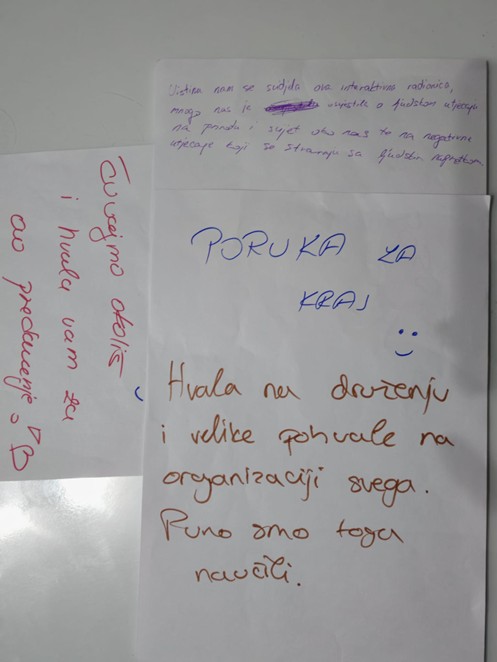 Uistinu nam se svidjela ova interaktivna radionica,
mnogo nas je osvijestila o ljudskom utjecaju
na prirodu i svijet oko nas te na negativne
utjecaje koji se stvaraju sa ljudskim napretkom
PORUKA ZA
KRAJ
Hvala na druženju
i velike pohvale na
organizaciji svega.
Puno smo toga
naučili.
Čuvajmo okoliš
i hvala vam za
ovo predavanje